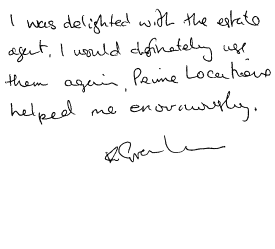 I was delighted with the estate
agent. I would definately use
them again. Prime Locations
helped me enormously.